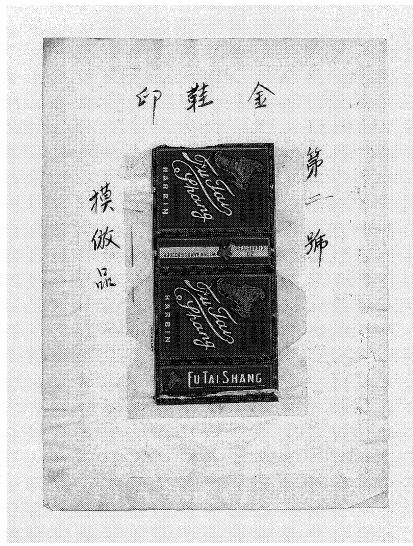 金鞋印
第二號
Fu Tai
Shang
HARBIN
Fu Tai
Shang
HARBIN
FU TAI SHANG
模倣品